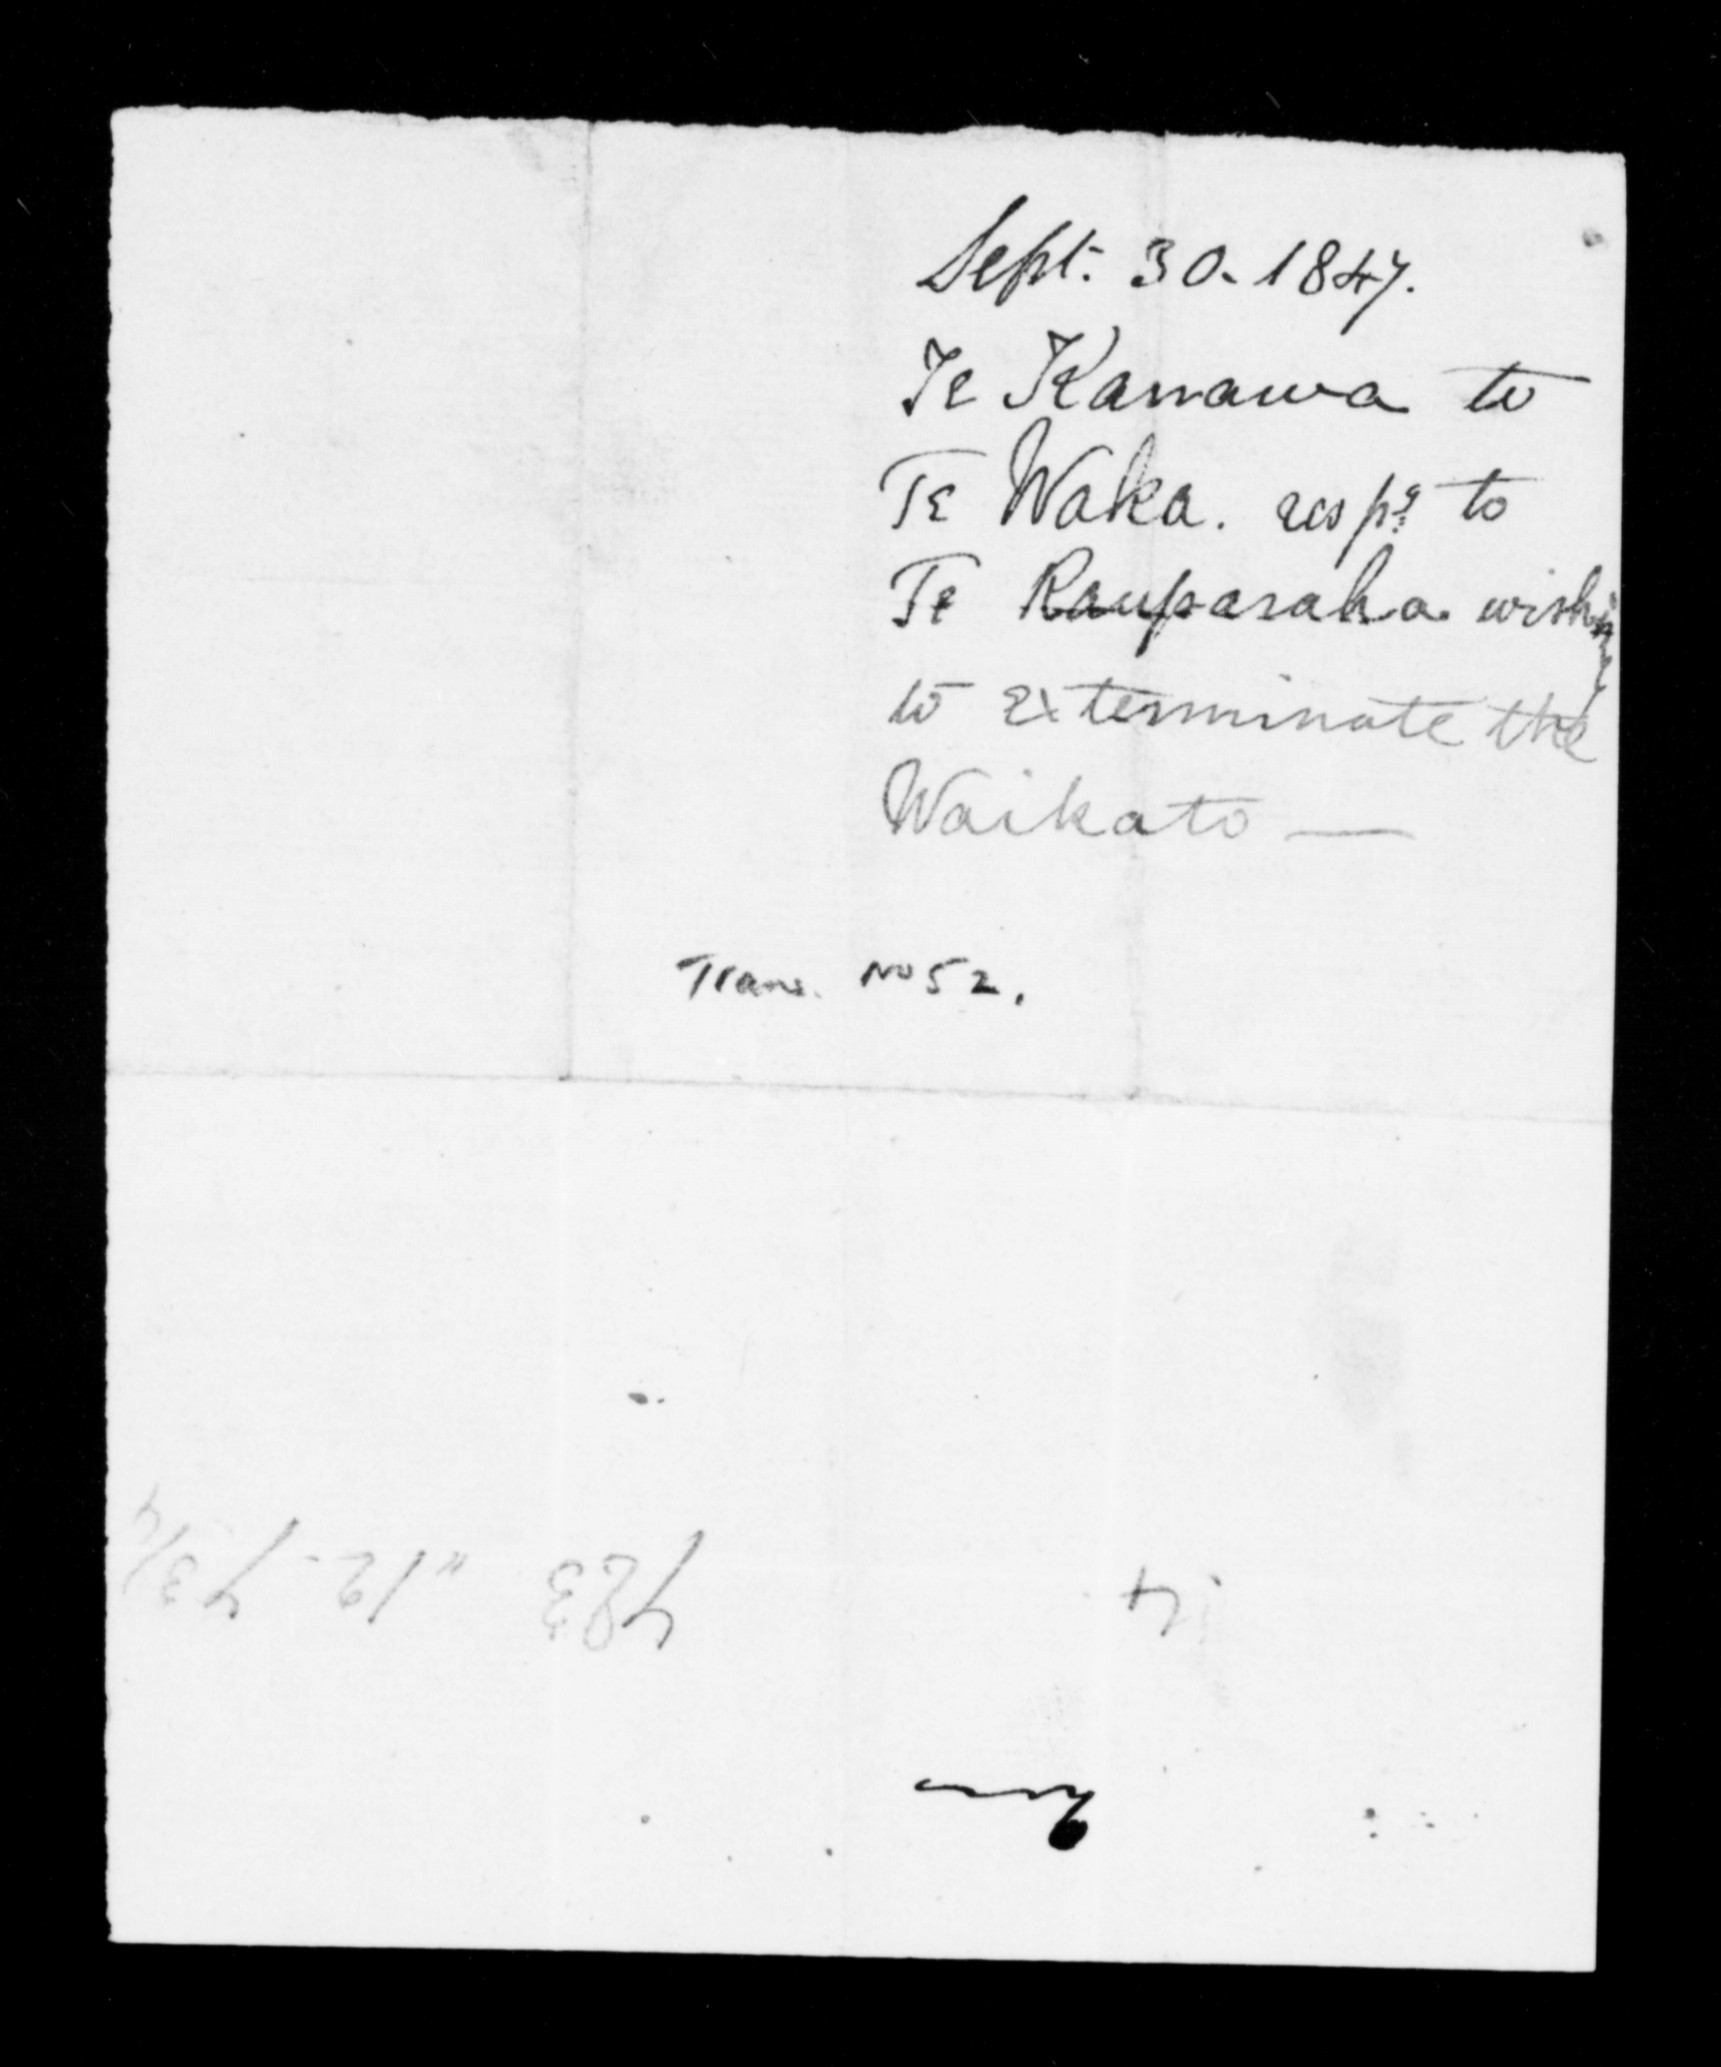 Sept. 30. 1847.
Te Kanawa to
Te Waka. respg to
Te Rauparaha wishing
to exterminate the
Waikato —
Trans. No 52.
783 " 12 - 7 3/4